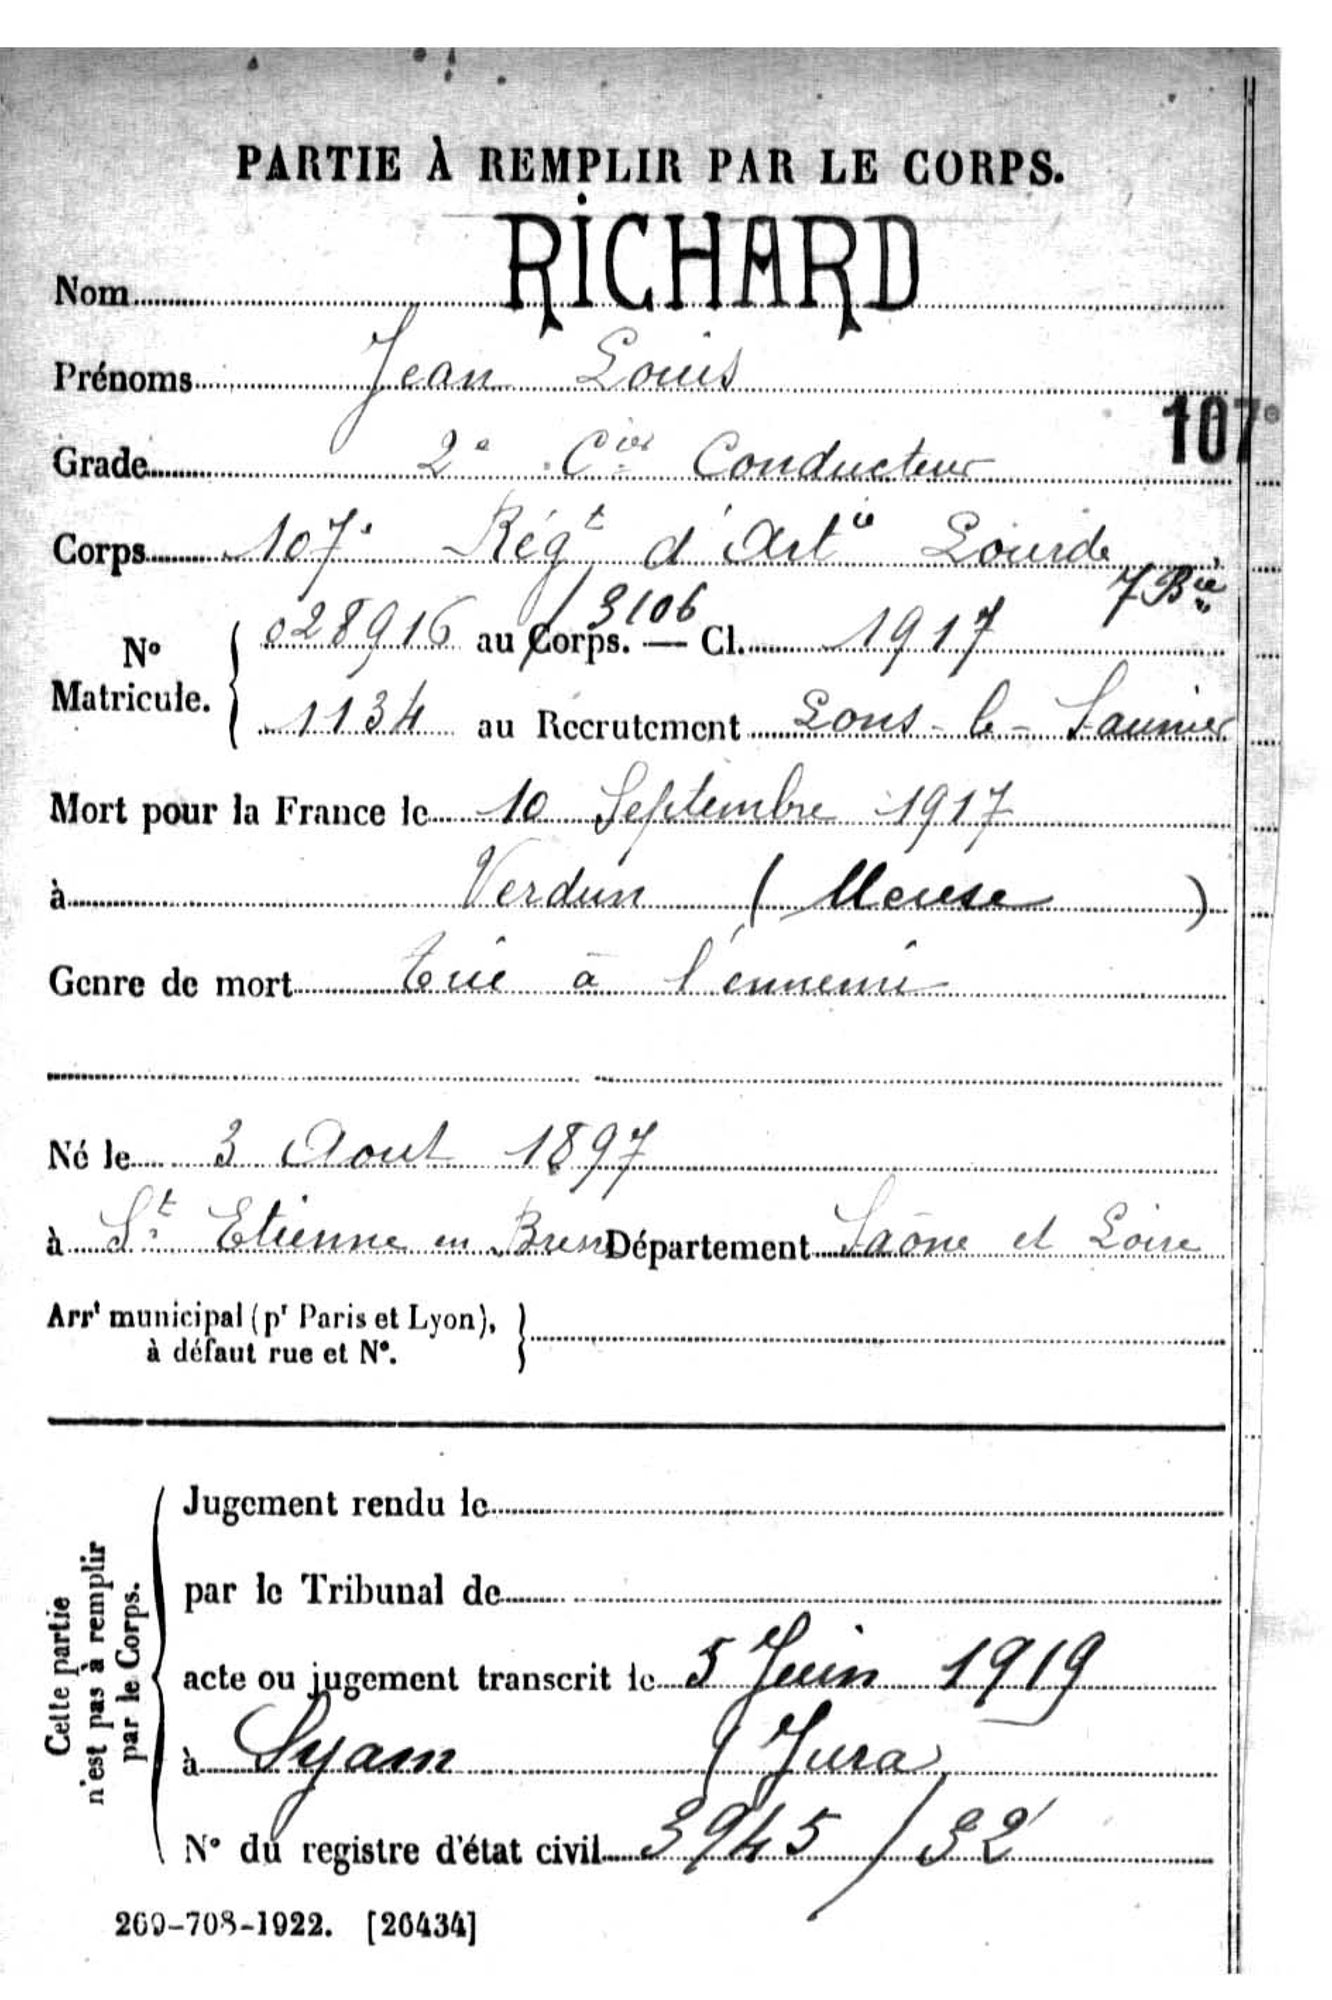 PARTIE À REMPLIR PAR LE CORPS.
Nom RICHARD
Prénoms Jean Louis
107e
Grade 2e Cier Conducteur
Corps 107e Régt d'Artie Lourde,
7 Bie
No Matricule. { 028916 / 3106 au Corps. — Cl. 1917
1134 au Recrutement Lons-le-Saunier
Mort pour la France le 10 Septembre 1917
à Verdun (Meuse)
Genre de mort tué à l'ennemi
Né le 3 Aout 1897
à St Etienne en Bresse Département Saône et Loire
Arrt municipal (pr Paris et Lyon), }
à défaut rue et No.
Cette partie
n'est pas à remplir
par le Corps.
Jugement rendu le
par le Tribunal de
acte ou jugement transcrit le 5 Juin 1919
à Syam (Jura)
No du registre d'état civil 3945/32
269-708-1922. [26434]